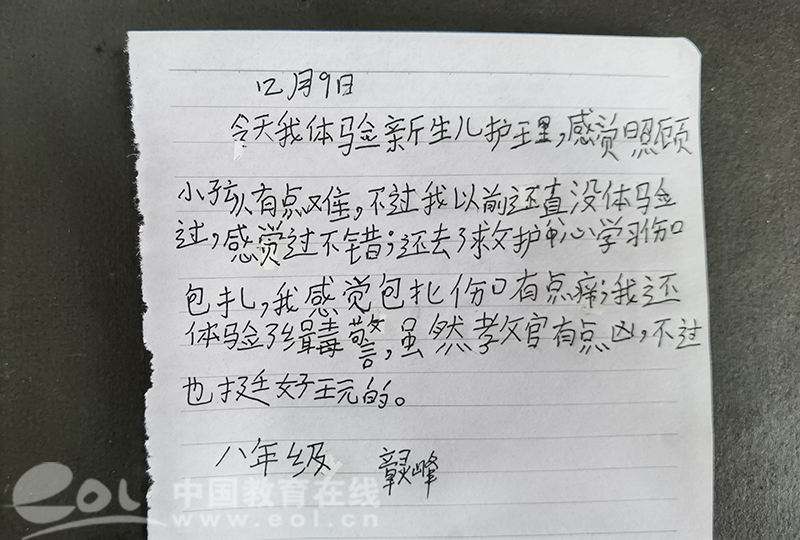 12月9日
今天我体验新生儿护理,感觉照顾
小孩有点难,不过我以前还真没体验
过,感觉过不错;还去了救护中心学习伤口
包扎,我感觉包扎伤口有点痒;我还
体验了缉毒警,虽然教官有点凶,不过
也挺好玩的。
八年级 赣峰
eol 中国教育在线
www.eol.cn